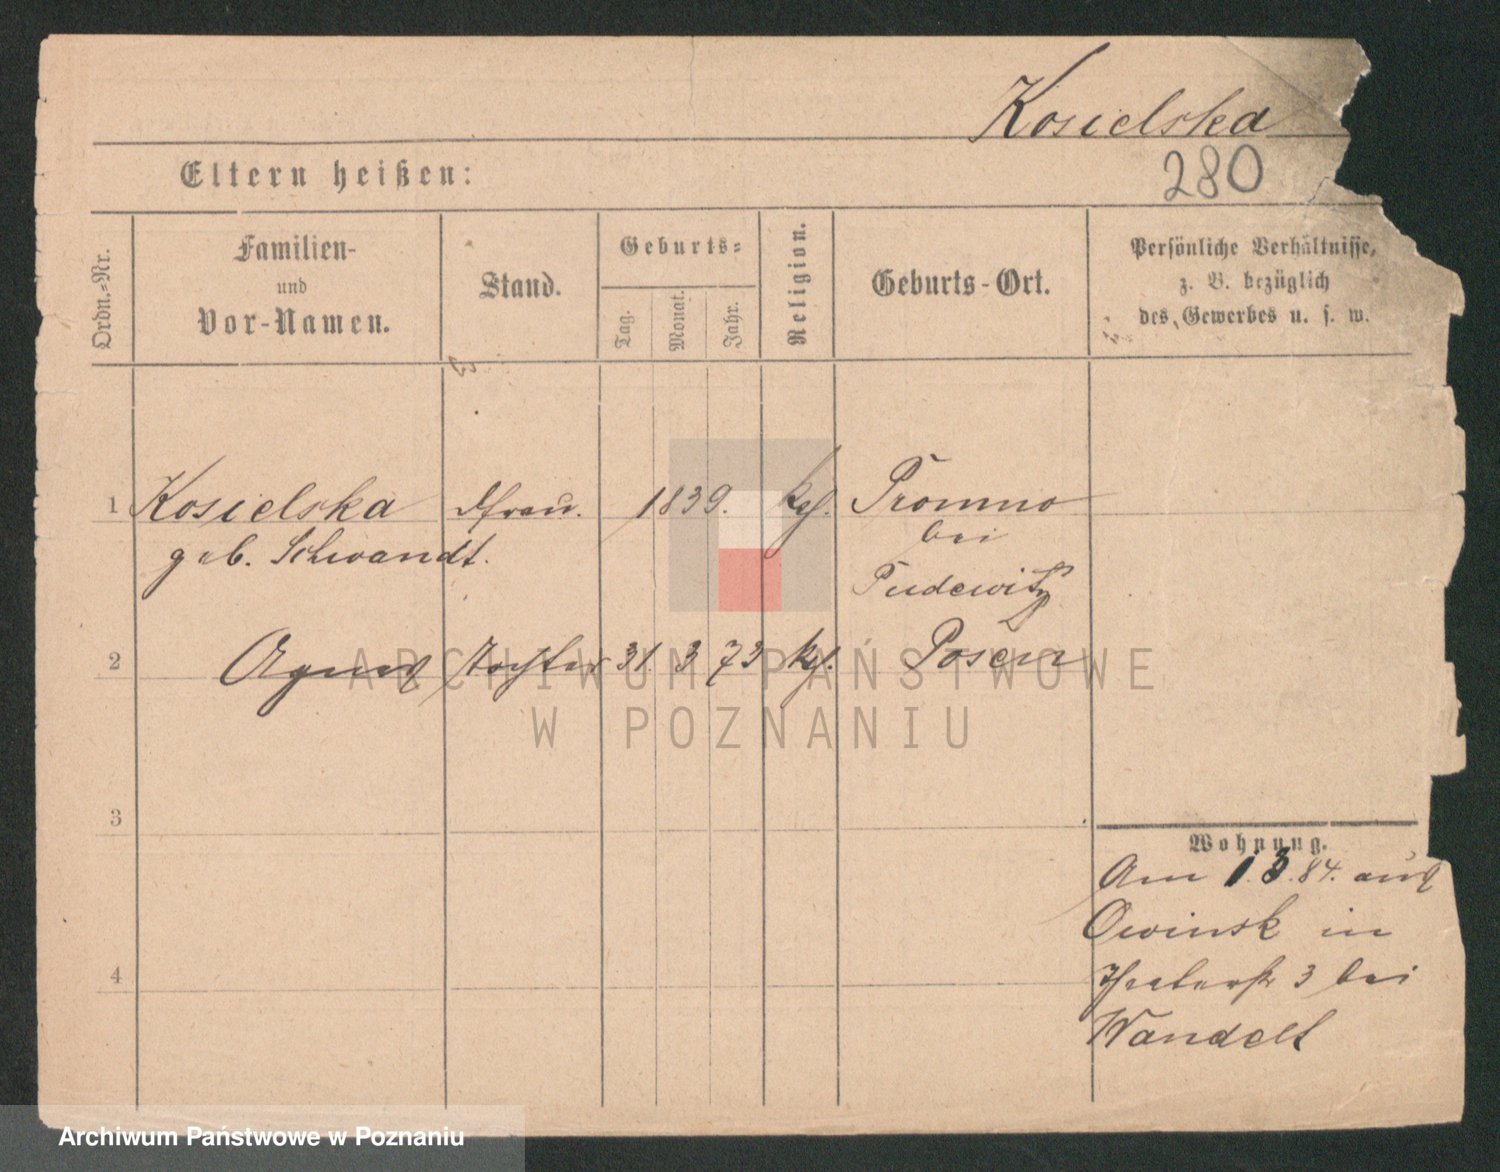 Kosielska
280
Eltern heißen:
Ordn.-Nr.
Familien-
und
Vor-Namen.
Stand.
Geburts-
Tag.
Monat.
Jahr.
Religion.
Geburts-Ort.
Persönliche Verhältnisse,
z. B. bezüglich
des Gewerbes u. s. w.
1 Kosielska Ehfrau. 1839. kth. Promno
geb. Schwandt. bei
Pudewitz
2 Agnes Tochter 31. 3 73 kth. Posen
ARCHIWUM PAŃSTWOWE
W POZNANIU
3
Wohnung.
Am 1.3.84. aus
Owinsk in
4
Theaterstr 3 bei
Wandelt
Archiwum Państwowe w Poznaniu